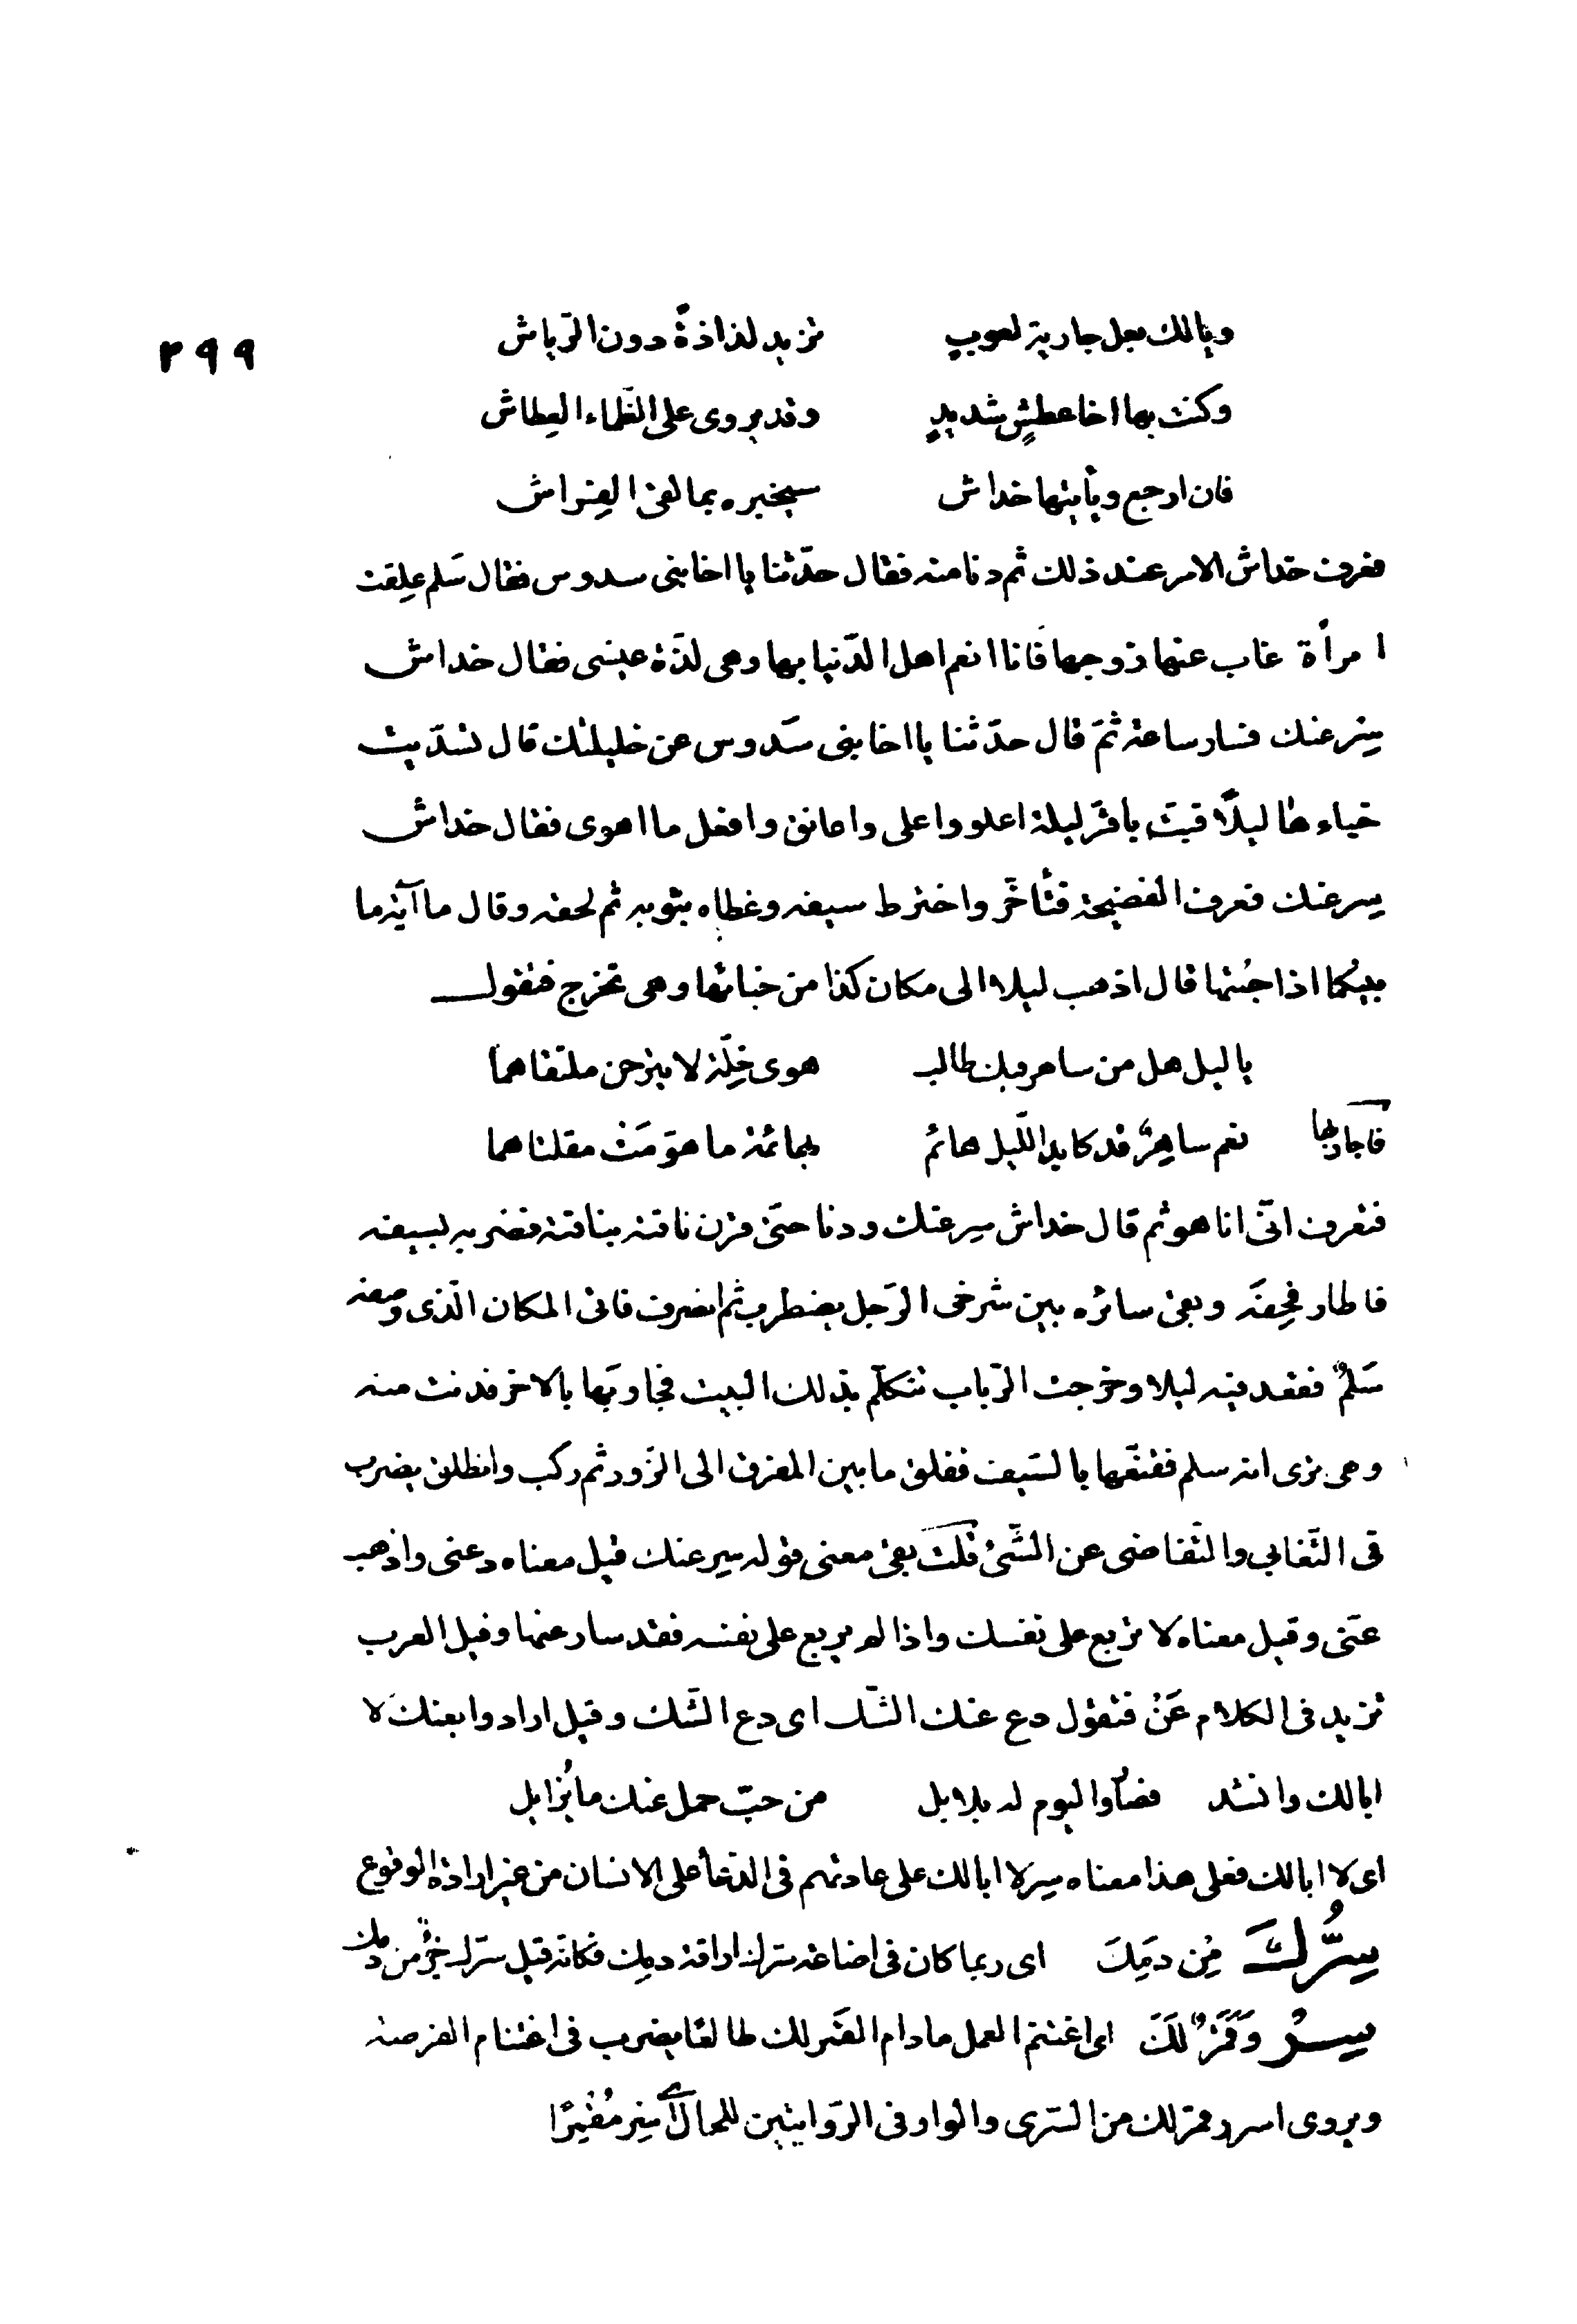 ويالك بعل جارية لعوبٍ تزيد لذاذةً دون الرّياش
٢٩٩
وكنت بها اخا عطشٍ شديدٍ وقد يروى على الظّماء العِطاش
فان ارجع ويأتيها خداش سيخبره بما لقى الفِراش
فعرف خداش الامر عند ذلك ثم دنا منه فقال حدّثنا يا اخا بنى سدوس فقال سَلم علِقت
امرأة غاب عنها زوجها فانا انعم اهل الدّنيا بها وهى لذّة عيشى فقال خداش
سِر عنك فسار ساعة ثمّ قال حدّثنا يا اخا بنى سَدوس عن خليلتك قال تسدّيت
خباءها ليلًا فبتّ باقرّ ليلة اعلو واعلى واعانق وافعل ما اهوى فقال خداش
سِر عنك فعرف الفضيحة فتأخّر واخترط سيفه وغطاه بثوبه ثم لحقه وقال ما آية ما
بينكما اذا جُئتها قال اذهب ليلا الى مكان كذا من خبائها وهى تخرج فتقول
يا ليل هل من ساهر فيك طالب هوى خِلّة لا ينزحن ملتقاهما
فاجاوبها نعم ساهِرٌ قد كابد اللّيل هائم بهائمة ما هوّمَتْ مقلتاهما
فتعرف انّى انا هو ثم قال خداش سِر عنك ودنا حتى قرن ناقته بناقته فضربه بسيفه
فاطار قِحفَه وبقى سائره بين شرخى الرّحل يضطرب ثم انصرف فاتى المكان الّذى وصفه
سَلمٌ فقعد فيه ليلا وخرجت الرّباب تتكلّم بذلك البيت فجاوبَها بالاخر فدنت منه
وهى ترى انه سلم فقنّعها بالسّيف ففلق ما بين المفرق الى الزّور ثم ركب وانطلق يضرب
فى التّغابى والتّغاضى عن الشّئ قلت بقى معنى قوله سِر عنك قيل معناه دعنى واذهب
عنّى وقيل معناه لا تربع على نفسك واذا لم يربع على نفسه فقد سار عنها وقيل العرب
تزيد فى الكلام عَنْ فتقول دع عنك الشّك اى دع الشّك وقيل ارادوا بعنك لا
ابالك وانشد فصار واليوم له بلابل من حبّ جمل عنك ما يُزايل
اى لا ابالك فعلى هذا معناه سِر لا ابالك على عادتهم فى الدّعا على الانسان من غير ارادة الوقوع
سِرُّكَ مِن دمِكَ اى ربما كان فى اضاعة سرّك اراقة دمك فكانّه قيل سرّك جزءٌ من دمك
سِرْ وَقَمَرٌ لَكَ اى اغتنم العمل ما دام القمَر لك طالعًا يضرب فى اغتنام الفرصة
ويروى اسر وقمر لك من السّرى والواو فى الرّوايتين للحال اى سِر مُقْمِرًا